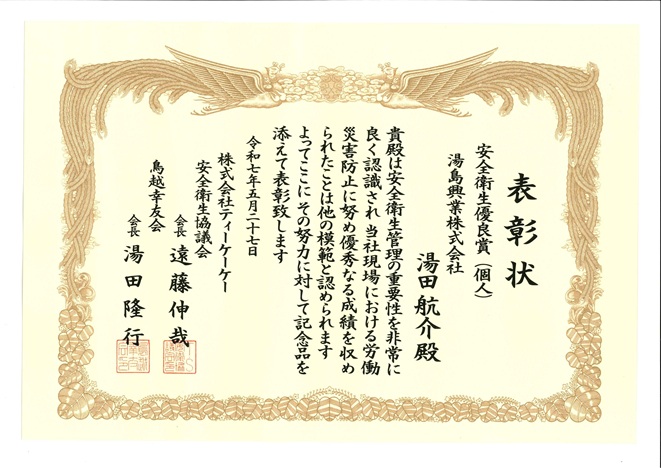 表彰状
安全衛生優良賞(個人)
湯島興業株式会社
湯田航介殿
貴殿は安全衛生管理の重要性を非常に
良く認識され当社現場における労働
災害防止に努め優秀なる成績を収め
られたことは他の模範と認められます
よってここにその努力に対して記念品を
添えて表彰致します
令和七年五月二十七日
株式会社ティーケーケー
安全衛生協議会
会長 遠藤伸哉
鳥越幸友会
会長 湯田隆行